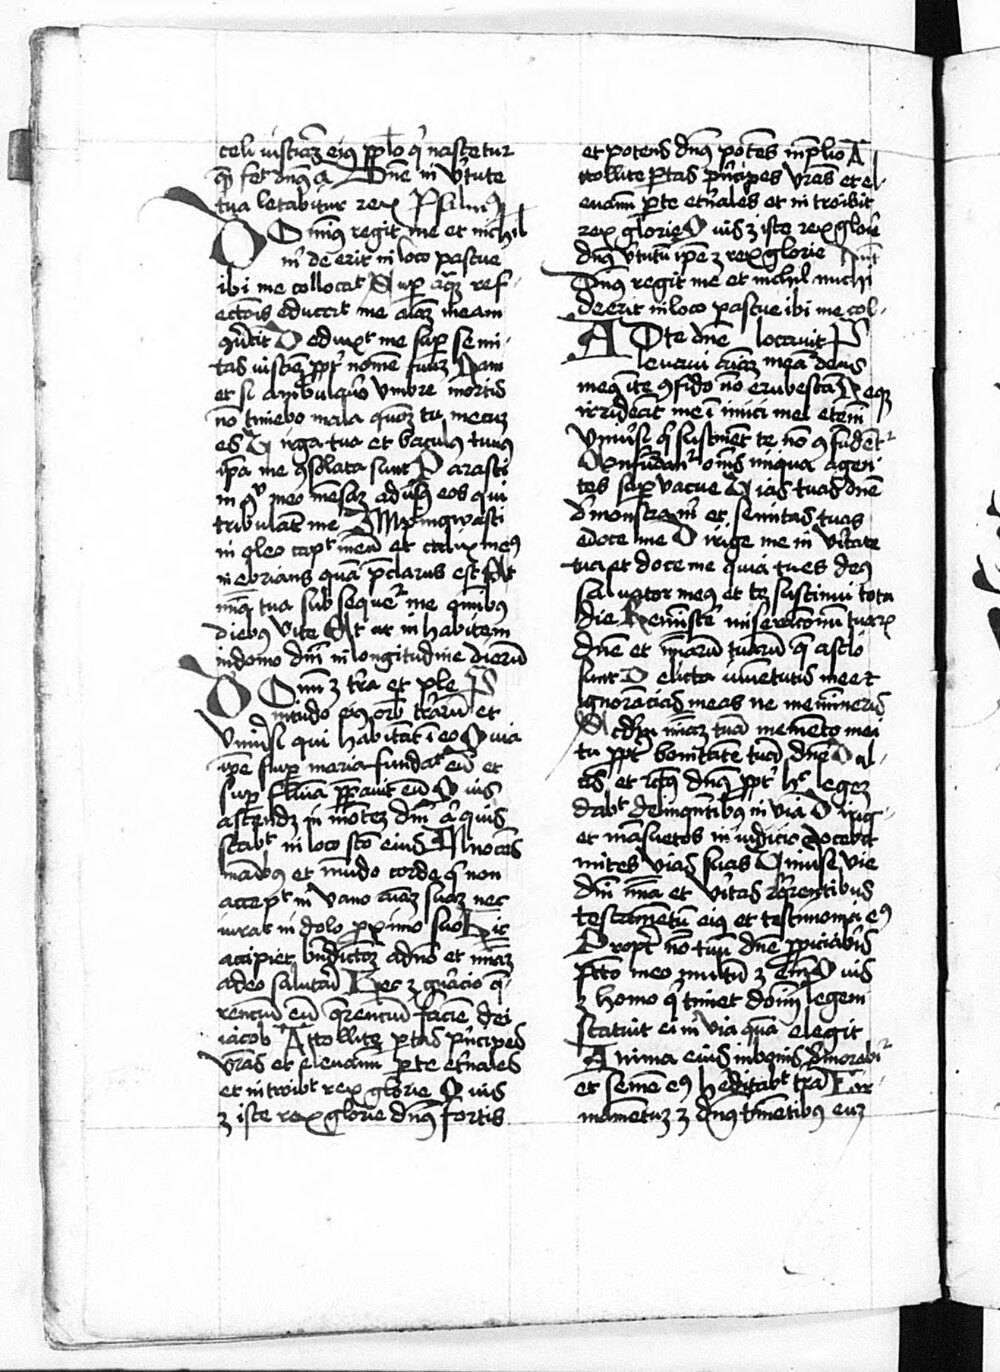 celi iusticiā eius pplo q̇ nascetur
q̄ fec̄ dn̄s a Dn̄e in v̄tute
tua letabitur rex Psalmꝯ
Dominꝰ regit me et nichil
m̄ deerit in loco pascue
ibi me collocat Sup̄ aquā ref-
ectōis educavit me aīaz meam
ꝯv̄tit Deduxᵗ me sup̄ semi-
tas iusticie ꝓpt̄ nomē suūz Nam
et si ambulav̄o in vmbre mortis
nō timebo mala quoz tu mecuz
es Virga tua et baculꝰ tuus
ip̄a me ꝯsolata sunt Parasti
in ꝯsp̄ meo mēsaz adūsꝰ eos qui
tribulāt me Impingwasti
in oleo capᵗ meū et calix meꝰ
inebrians quā p̄clarus est Et
mīa tua subsequetᵘʳ me omnibꝰ
diebus vite Et ut inhabitem
indomo dn̄i in longitudine dierū
Domi ꝫ tr̄a et ple Pˢ
nitudo eiꝰ orb̄ tr̄arū et
vniūsi qui habitāt ī eo Quia
ip̄e sup̄ maria fundaᵗ eū et
sup̄ flūia pp̄auit eū Quis
ascendꝫ in mōteꝫ dn̄i aᵗ quis
stabᵗ in loco sc̄o eius Innocēs
manibꝰ et mūdo corde q̇ non
accepᵗ in vano aīaz suāz nec
iurat in dolo ꝓximo suo Hic
accipiet bn̄dictōꝫ adn̄o et mīaꝫ
adeo salutarī Hec ꝫ gn̄acio q̄-
rencium eū q̄rencium faciē dei
iacob Attollite portas p̄ncipes
vr̄as et eleuamī porte et̄nales
et introibᵗ rex glorie Quis
ꝫ iste rex glorie dn̄s fortis
et potens dn̄s potēs inp̄lio A
ttollite ꝑtas p̄ncipes vr̄as et el-
euamī ꝑte et̄nales et introibit
rex glorie Quis ꝫ iste rex glorie
dn̄s v̄tutū ip̄e ꝫ rex glorie Ant̄
Dn̄s regit me et nichil michi
deerit in loco pascue ibi me col-
Ad te dn̄e locauit Pˢ
leuaui aīaꝫ meā deus
meꝰ ī te ꝯfido nō erubescaꝫ Neqꝫ
irrideāt me ī imici mei etem̄
vniūsi q̇ sustinēt te nō ꝯfundētᵘʳ
Confundātᵘʳ om̄s iniqua agen
tes sup̄vacue Vias tuas dn̄e
dmonstra m̄ et semitas tuas
edoce me Dirige me in v̄itate
tua et doce me quia tu es deꝰ
saluator meꝰ et te sustinui tota
die Reminiscē miseracionū tuarꝝ
dn̄e et mīarū tuarū q̄ asclo
sunt Delicta iuuentutis mee et
ignorācias meas ne memineris
Scdm̄ mīaꝫ tuā memēto mei
tu ꝓpt̄ bonitatē tuā dn̄e Dul-
cis et rcꝰ dn̄s ꝓpt̄ hᶜ legeꝫ
dabᵗ delinquētibꝰ in via Diriget
et māsuetos in iudicio docebit
mites vias suas Vniuse vie
dn̄i mīa et v̄itas reqrentibus
testamētū eiꝰ et testimonia eꝰ
Propt̄ nō tuū dn̄e ꝓpiciab̄is
pcc̄o meo multū ꝫ em̄ Quis
ꝫ homo q̇ timet dominū legem
statuit ei in via quā elegit
Anima eius inbonis dmorabiᵗ
et semē eꝰ h̄editabᵗ trā Fir-
mamētuꝫ ꝫ dn̄s timētibꝰ euꝫ